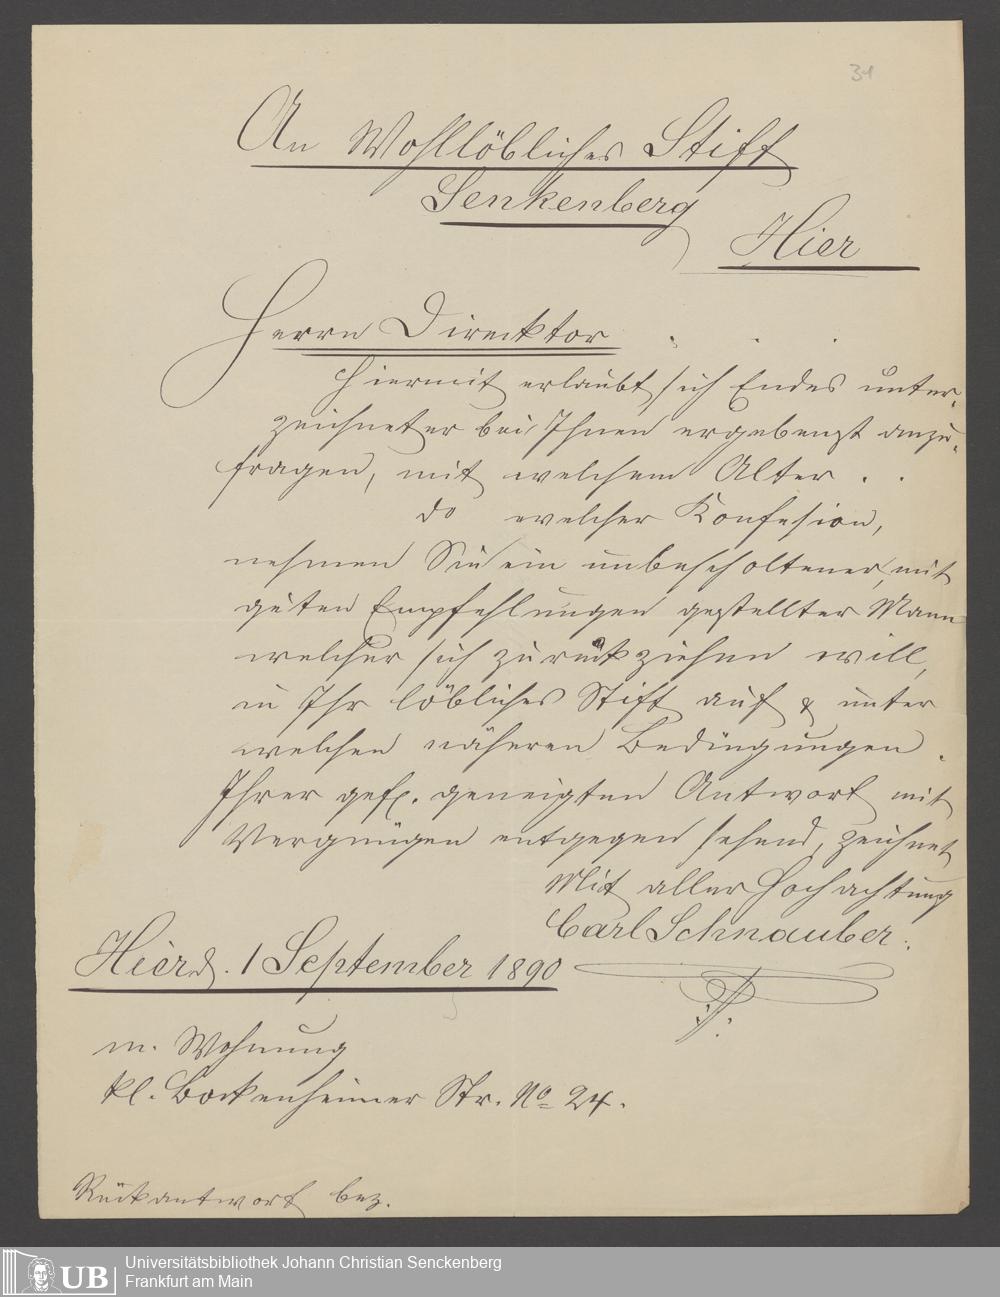 31
An Wohllöbliches Stift
Senkenberg
Hier
Herrn Direcktor . . .
Hiermit erlaubt sich Endes unter-
zeichneter bei Ihnen ergebenst anzu-
fragen, mit welchem Alter . .
do welcher Konfesion,
nehmen Sie ein unbescholtener, mit
guten Empfehlungen gestellter Mann
welcher sich zurückziehen will,
in Ihr löbliches Stift auf & unter
welchen näheren Bedingungen .
Ihrer gefl. geneigten Antwort mit
Vergnügen entgegen sehend, zeichnet
Mit aller Hochachtung
Carl Schnauber.
Hier d. 1 September 1890
m. Wohnung
kl. Bockenheimer Str. No 24.
Rückantwort bez.
UB
Universitätsbibliothek Johann Christian Senckenberg
Frankfurt am Main